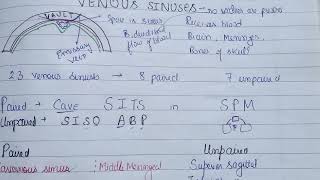 VENOUS SINUSES - no valves or musc
VAULT
Space in skull
Receives blood
Bidirectional flow of blood
Brain, Meninges,
Bones of skull
Emissary vein
23 venous sinuses → 8 paired 7 unpaired
Paired → Cave SITS in SPM
Unpaired → SISO ABP
Paired Unpaired
Cavernous sinus : Middle Meningeal Superior sagittal